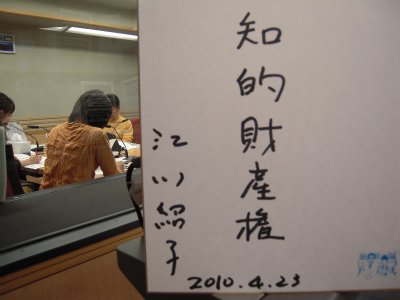 知的財産権
江川紹子
2010.4.23